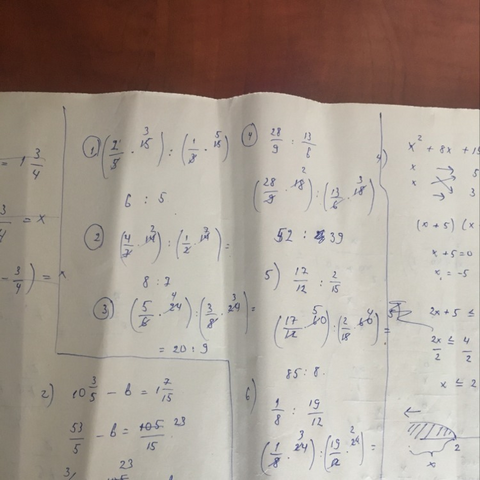 = 1 3/4
3/4 = x
- 3/4) = x
1) (2/5 · 15 3) : (1/3 · 15 5)
6 : 5
2 (4/7 · 14 2) : (1/2 · 14 7) =
8 : 7
3) (5/6 · 24 4) : (3/8 · 24 3) =
= 20 : 9
2) 10 3/5 - b = 1 7/15
53/5 - b = 23/15
23
4) 28/9 : 13/6
(28/9 · 18 2) : (13/6 · 18 3)
52 : 39
5) 17/12 : 2/15
(17/12 · 60 5) : (2/15 · 60 4) =
85 : 8
6) 1/8 : 19/12
(1/8 · 24 3) : (19/12 · 24 2) =
x² + 8x + 15
x → 5
x → 3
(x + 5) (x
x + 5 = 0
x = -5
2x + 5 ≤
2x/2 ≤ 4/2
x ≤ 2
2
x